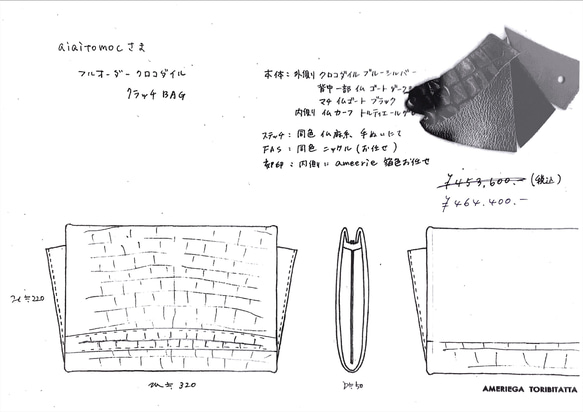 aiaitomocさま
フルオーダー クロコダイル
クラッチ BAG
本体：外側り クロコダイル ブルーシルバー
背中一部 仏 ゴート
マチ 仏ゴート ブラック
内側り 仏カーフ
ステッチ：同色 仏麻糸、手ぬいにて
FAS：同色 ニッケル（お任せ）
刻印：内側に ameerie 箔色お任せ
¥453,600.- (税込)
¥464.400.-
H≒220
W≒320
D≒50
AMERIEGA TORIBITATTA